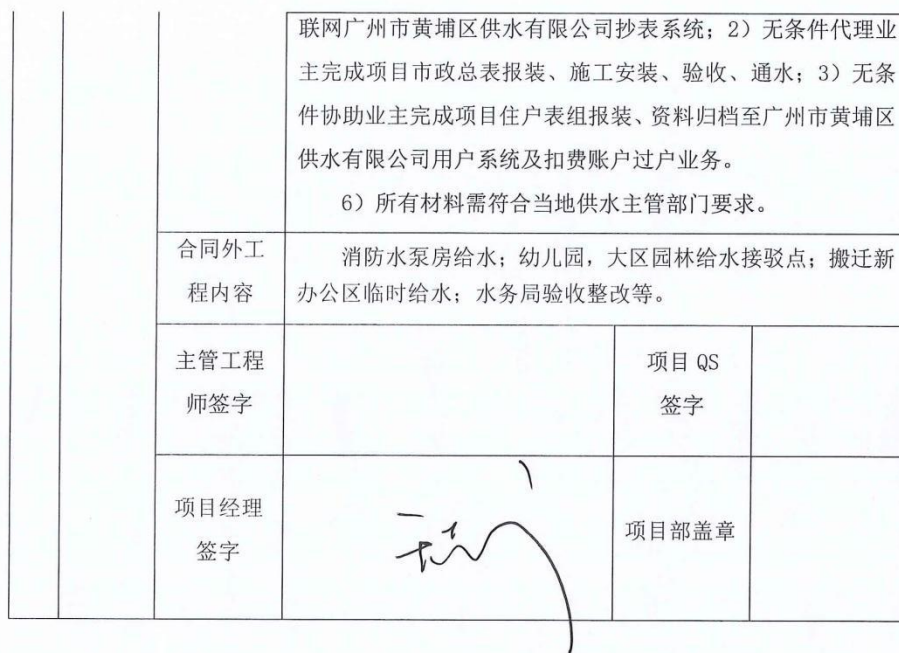 联网广州市黄埔区供水有限公司抄表系统；2）无条件代理业
主完成项目市政总表报装、施工安装、验收、通水；3）无条
件协助业主完成项目住户表组报装、资料归档至广州市黄埔区
供水有限公司用户系统及扣费账户过户业务。
6）所有材料需符合当地供水主管部门要求。
合同外工
程内容
消防水泵房给水；幼儿园，大区园林给水接驳点；搬迁新
办公区临时给水；水务局验收整改等。
主管工程
师签字
项目 QS
签字
项目经理
签字
项目部盖章